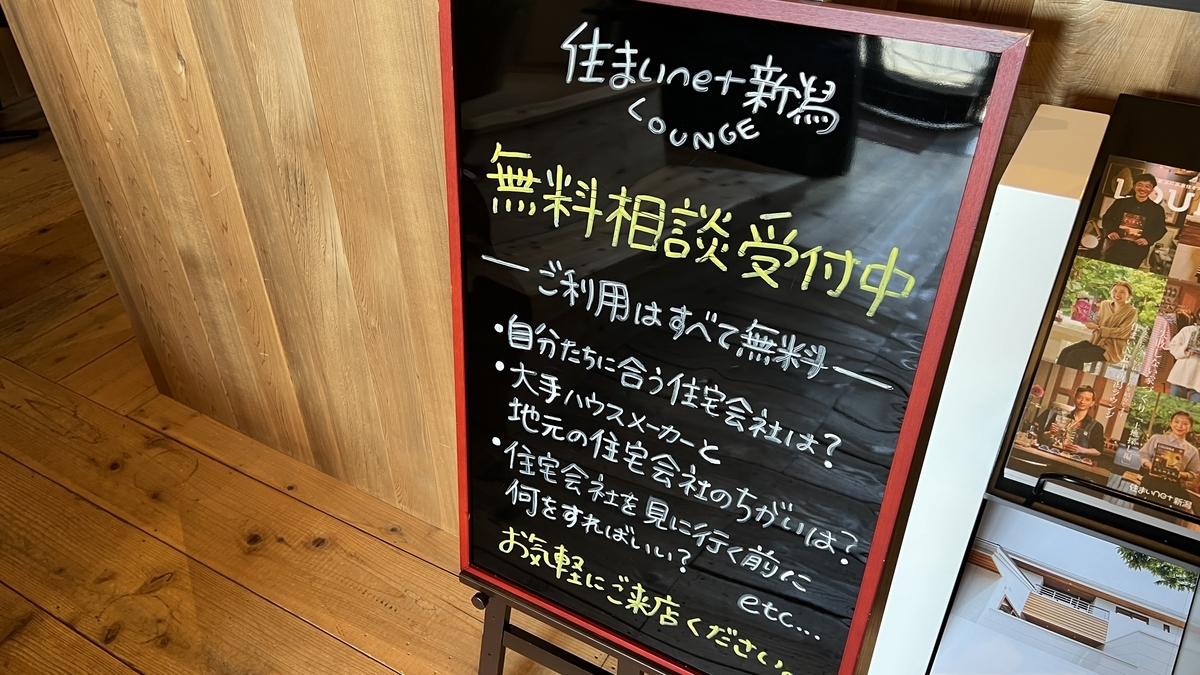 住まいnet新潟
LOUNGE
無料相談受付中
ー ご利用はすべて無料 ー
・自分たちに合う住宅会社は?
・大手ハウスメーカーと
地元の住宅会社のちがいは?
・住宅会社を見に行く前に
何をすればいい?
etc...
お気軽にご来店ください。
住まいnet新潟